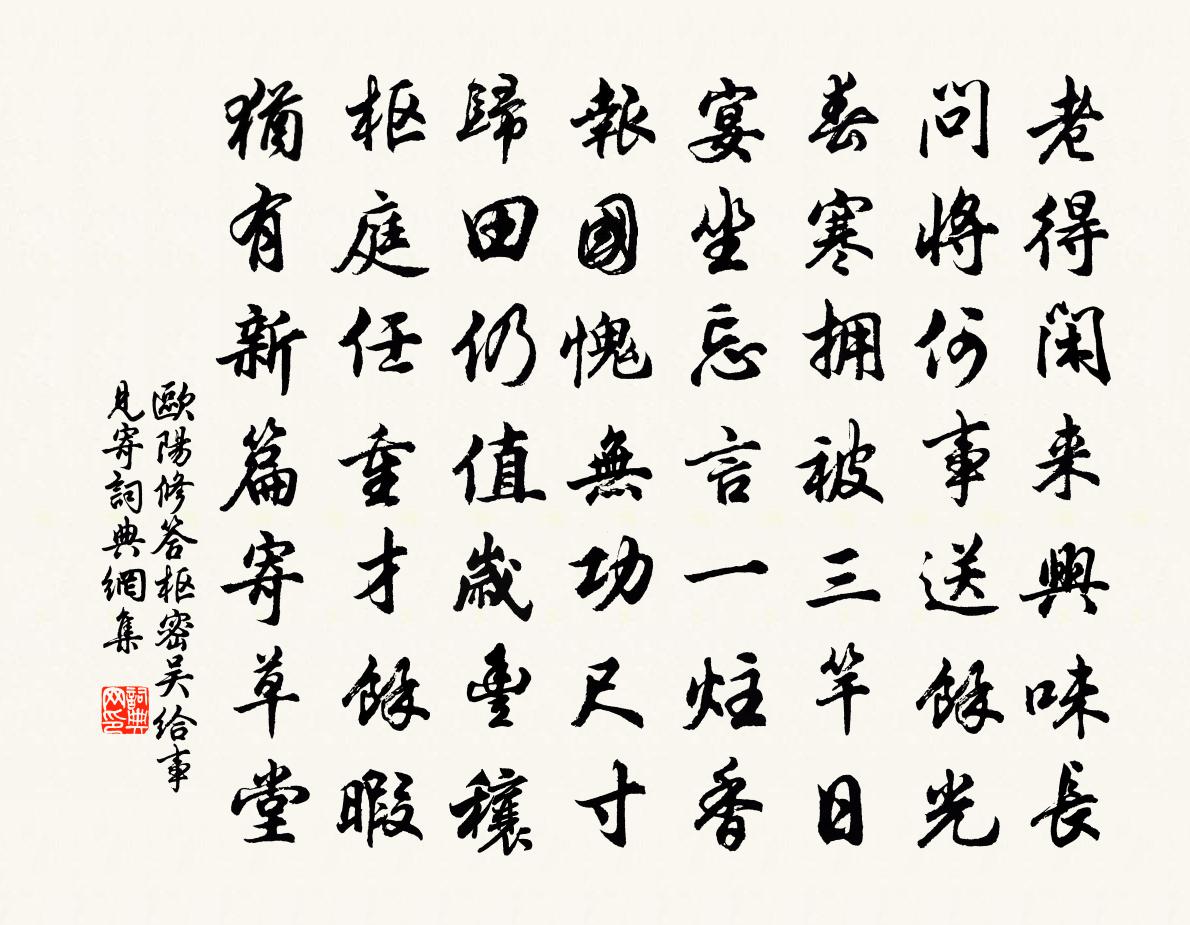 老得閑来興味長
問將何事送餘光
春寒擁被三竿日
宴坐忘言一炷香
報國愧無功尺寸
歸田仍值歲豐穰
枢庭任重才餘暇
猶有新篇寄草堂
歐陽修答枢密吳給事
見寄詞典網集
詞典网印